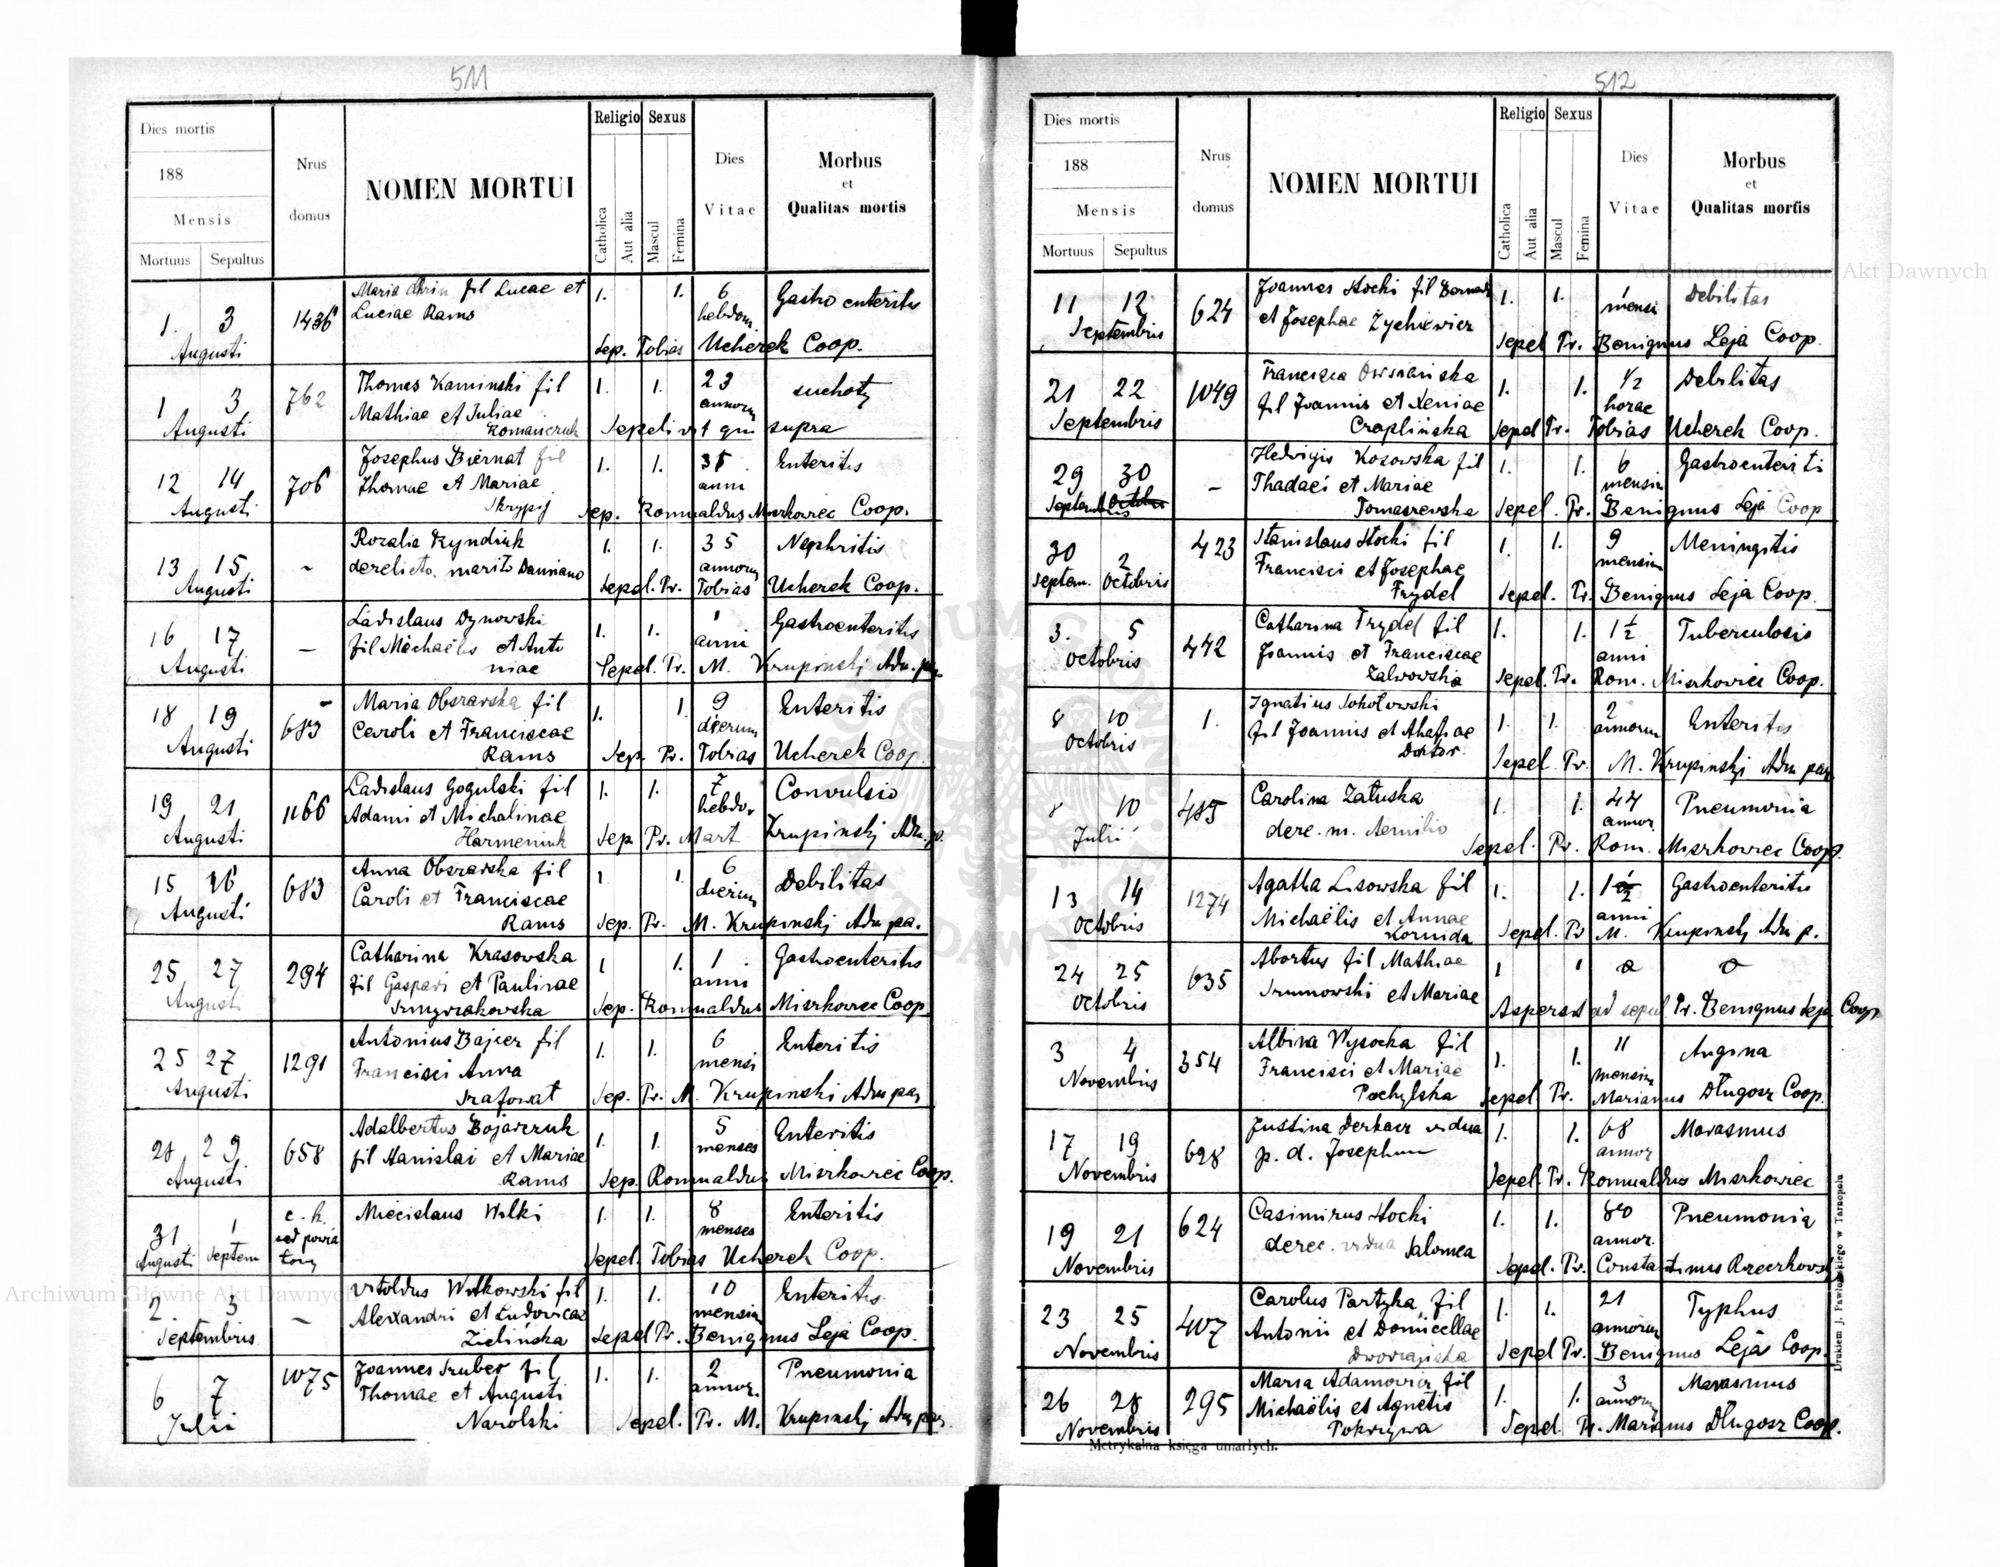 511
Dies mortis
188
Mensis
Mortuus Sepultus
Nrus domus
NOMEN MORTUI
Religio
Catholica
Aut alia
Sexus
Mascul
Femina
Dies Vitae
Morbus
et
Qualitas mortis
1. 3 1436 Maria fil Lucae et 1. 1. 6 Gastro enteritis
Luciae Rams hebdom.
Augusti Sep. Tobias Ucherek Coop.
1 3 762 Thomas Kaminski fil 1. 1. 23 suchoty
Mathiae et Juliae annorum
Augusti Romanczuk Sepelivit qui supra
12 14 706 Josephus Biernat fil 1. 1. Enteritis
Thomae et Mariae anni
Augusti Skrypij Sep. Romualdus Miszkowiec Coop.
13 15 - Rozalia Kyndiuk 1. 1. 35 Nephritis
derelicto marito Damiano annorum
Augusti Sepel. Pr. Tobias Ucherek Coop.
16 17 - Ladislaus Dynowski 1. 1. 1 Gastroenteritis
fil Michaëlis et Anto anni
Augusti niae Sepel. Pr. M. Krupinskj Adm. par.
18 19 683 Maria Obszarska fil 1. 1 9 Enteritis
Caroli et Franciscae dierum
Augusti Rams Sep. Pr. Tobias Ucherek Coop.
19 21 1166 Ladislaus Gogulski fil 1. 1. 7 Convulsio
Adami et Michalinae hebdo.
Augusti Harmeniuk Sep Pr. Mart Krupinskj Adm. p.
15 16 683 Anna Obszarska fil 1 1 6 Debilitas
Caroli et Franciscae dierum
Augusti Rams Sep. Pr. M. Krupinskj Adm par.
25 27 294 Catharina Krasowska 1 1. 1 Gastroenteritis
fil Gaspari et Paulinae anni
Augusti Smyrzakowska Sep. Romualdus Miszkowiec Coop.
25 27 1291 Antonius Bajcer fil 1. 1. 6 Enteritis
Francisci Anna mensi
Augusti Szafowat Sep. Pr. M. Krupinski Adm par,
28 29 658 Adalbertus Bojarczuk 1. 1. 5 Enteritis
fil Stanislai et Mariae menses
Augusti Rams Sep. Romualdus Miszkowiec Coop.
31 1 c. k. sąd powia towy Miecislaus Wilki 1. 1. 8 Enteritis
menses
Augusti Septem Sepel. Tobias Ucherek Coop.
2. 3 - Vitoldus Witkowski fil 1. 1. 10 Enteritis
Alexandri et Ludovicae mensium
Septembris Zielińska Sepel Pr. Benignus Leja Coop.
6 7 1075 Joannes Szuber fil 1. 1. 2 Pneumonia
Thomae et Augusti annor.
Julii Narolski Sepel. Pr. M. Krupinskj Adm par.
512
Dies mortis
188
Mensis
Mortuus Sepultus
Nrus domus
NOMEN MORTUI
Religio
Catholica
Aut alia
Sexus
Mascul
Femina
Dies Vitae
Morbus
et
Qualitas mortis
11 12 624 Joannes Stocki fil 1. 1. 1 Debilitas
et Josephae Żychiewicz mensi
Septembris Sepel Pr. Benignus Leja Coop.
21 22 1049 Francisca Owsiańska 1. 1. 1/2 Debilitas
fil Joannis et Xeniae horae
Septembris Czaplińska Sepel Pr. Tobias Ucherek Coop.
29 30 - Hedvigis Kosowska fil 1. 1. 6 Gastroenteriti
Thadaei et Mariae mensium
Septembris Octobris Tomaszewska Sepel. Pr. Benignus Leja Coop
30 2 423 Stanislaus Stocki fil 1. 1. 9 Meningitis
Francisci et Josephae mensium
Septem. Octobris Frydel Sepel. Pr. Benignus Leja Coop.
3. 5 442 Catharina Frydel fil 1. 1. 1 1/2 Tuberculosis
Joannis et Franciscae anni
Octobris Zalwowska Sepel. Pr. Rom. Miszkowiec Coop.
8 10 1. Ignatius Sokołowski 1. 1. 2 Enteritis
fil Joannis et Ahafiae annorum
Octobris Doktor. Sepel. Pr. M. Krupinskj Adm par.
8 10 485 Carolina Załuska 1. 1. 44 Pneumonia
dere. m. Aemilio annor.
Julii Sepel. Pr. Rom. Miszkowiec Coop.
13 14 1274 Agatha Lisowska fil 1. 1. 1 1/2 Gastroenteritis
Michaëlis et Annae anni
Octobris Kornida Sepel. Pr M. Krupinskj Adm p.
24 25 635 Abortus fil Mathiae 1 1
Szumowski et Mariae
Octobris Aspersit ad sepul Pr. Benignus Leja Coop
3 4 354 Albina Wysocka fil 1. 1. 11 Angina
Francisci et Mariae mensium
Novembris Pochylska Sepel Pr. Marianus Długosz Coop.
17 19 628 Justina Derkacz vidua 1. 1. 68 Marasmus
p. d. Josephum annor
Novembris Sepel Pr. Romualdus Miszkowiec
19 21 624 Casimirus Stocki 1. 1. 80 Pneumonia
derec. vidua Salomea annor.
Novembris Sepel. Pr. Constantinus
23 25 407 Carolus Partyka fil 1. 1. 21 Typhus
Antonii et Domicellae annorum
Novembris Sepel Pr. Benignus Leja Coop.
26 28 295 Maria Adamowicz fil 1. 1. 3 Marasmus
Michaëlis et Agnetis annorum
Novembris Pokrzywa Sepel. Pr. Marianus Długosz Coop.
Metrykalna księga umarłych.
Drukiem J. Pawłowskiego w Tarnopolu
Archiwum Główne Akt Dawnych
Archiwum Główne Akt Dawnych
ARCHIWUM GŁÓWNE AKT DAWNYCH